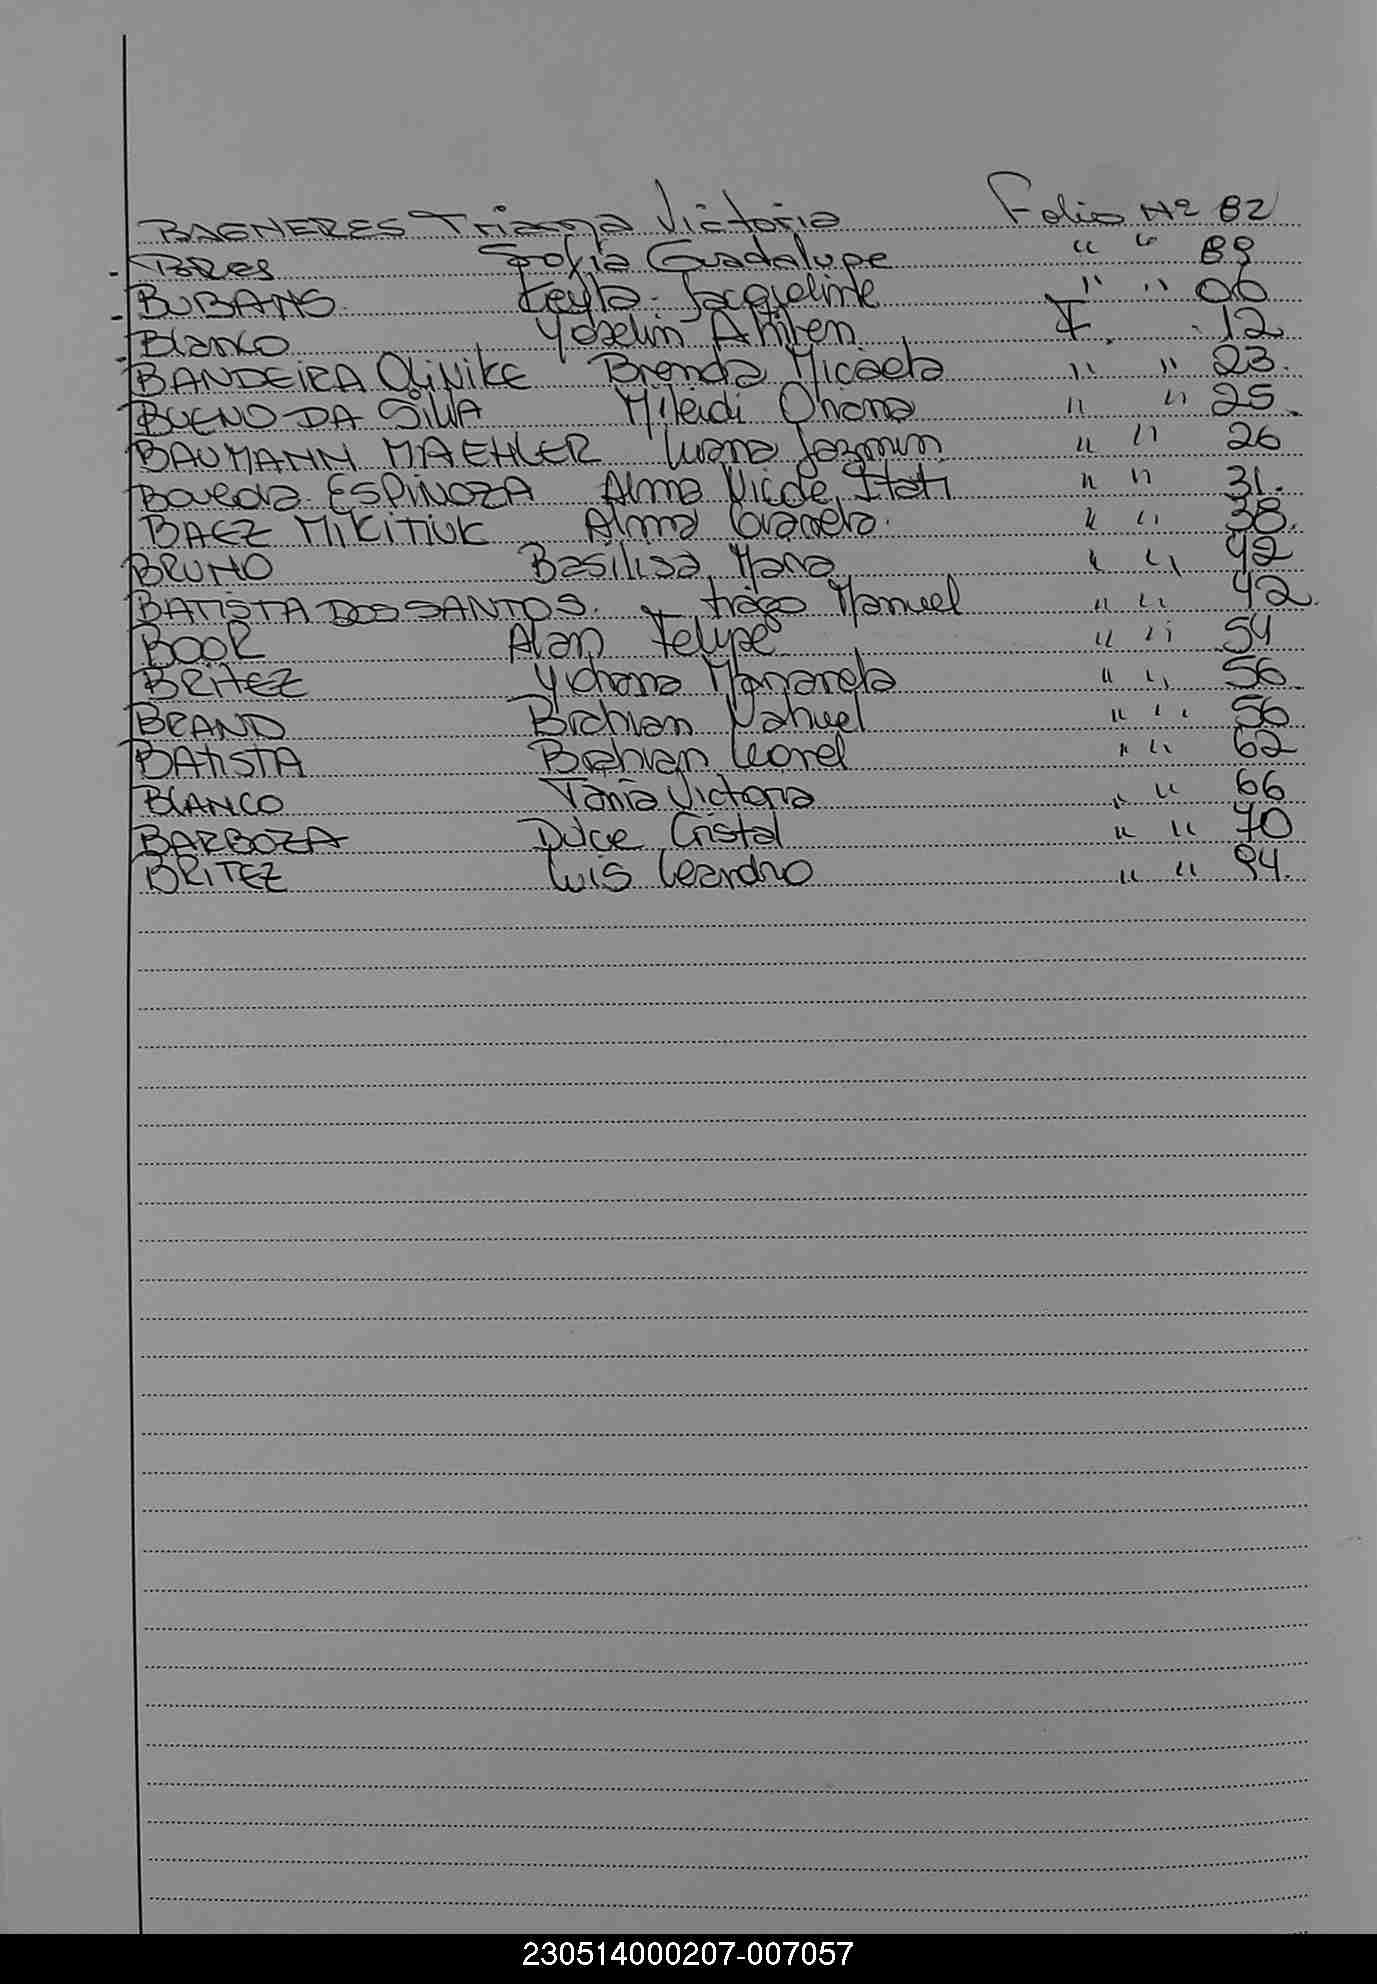 BAGNERES Triana Victoria Folio Nº 82
- BRes Sofia Guadalupe " " 89
- BUBANS. Keyla. Jacqueline " " 06
- Blanco Yoselin Ahilen F. 12
BANDEIRA OliNiKE Brenda Micaela " " 23.
BUENO DA SilVA Mileidi Ohana " " 25.
BAUMANN MAEHLER Luana Jazmin " " 26
Boveda ESPINOZA Alma Nicole Itati " " 31.
BAEZ MIKITIUK Alma Graciela. " " 38.
BRUNO Basilisa Maria " " 42
BATISTA DOS SANTOS. tiago Manuel " " 42.
BOOR Alan Felype " " 54
BRitEZ Yohana Marianela " " 56.
BRAND Brahian Nahuel " " 56
BAtiSTA Brahian Leonel " " 62
BLANCO Tania Victoria " " 66
BARBOZA Dulce Cristal " " 70
BRITEZ Luis Leandro " " 94.
230514000207-007057